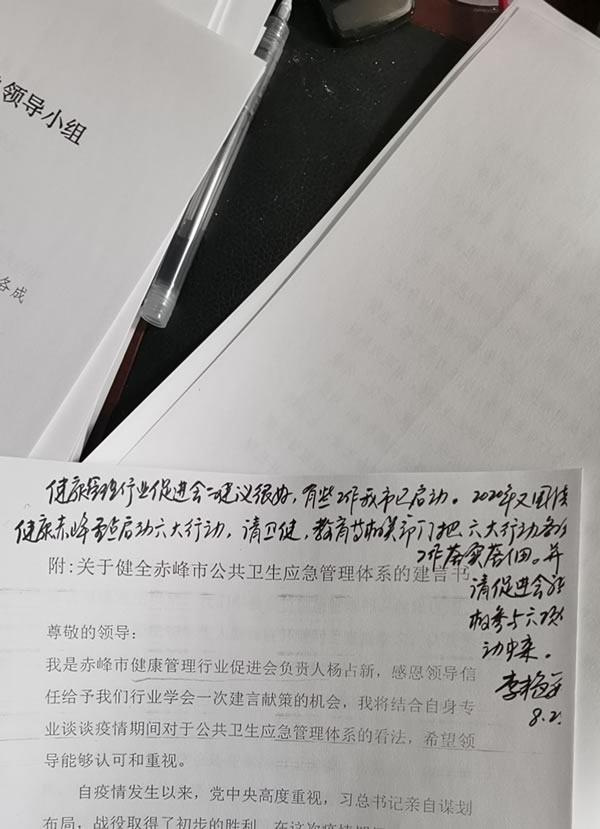 领导小组
各成
健康管理行业促进会建议很好,有些工作我市已启动。2020年又围绕
健康赤峰重点启动六大行动,请卫健,教育等相关部门把六大行动各项
工作落实落细。并
请促进会积
极参与六项
动中来。
8.2.
附:关于健全赤峰市公共卫生应急管理体系的建言书
尊敬的领导:
我是赤峰市健康管理行业促进会负责人杨占新,感恩领导信
任给予我们行业学会一次建言献策的机会,我将结合自身专
业谈谈疫情期间对于公共卫生应急管理体系的看法,希望领
导能够认可和重视。
自疫情发生以来,党中央高度重视,习总书记亲自谋划
布局,战役取得了初步的胜利。在这次疫情期